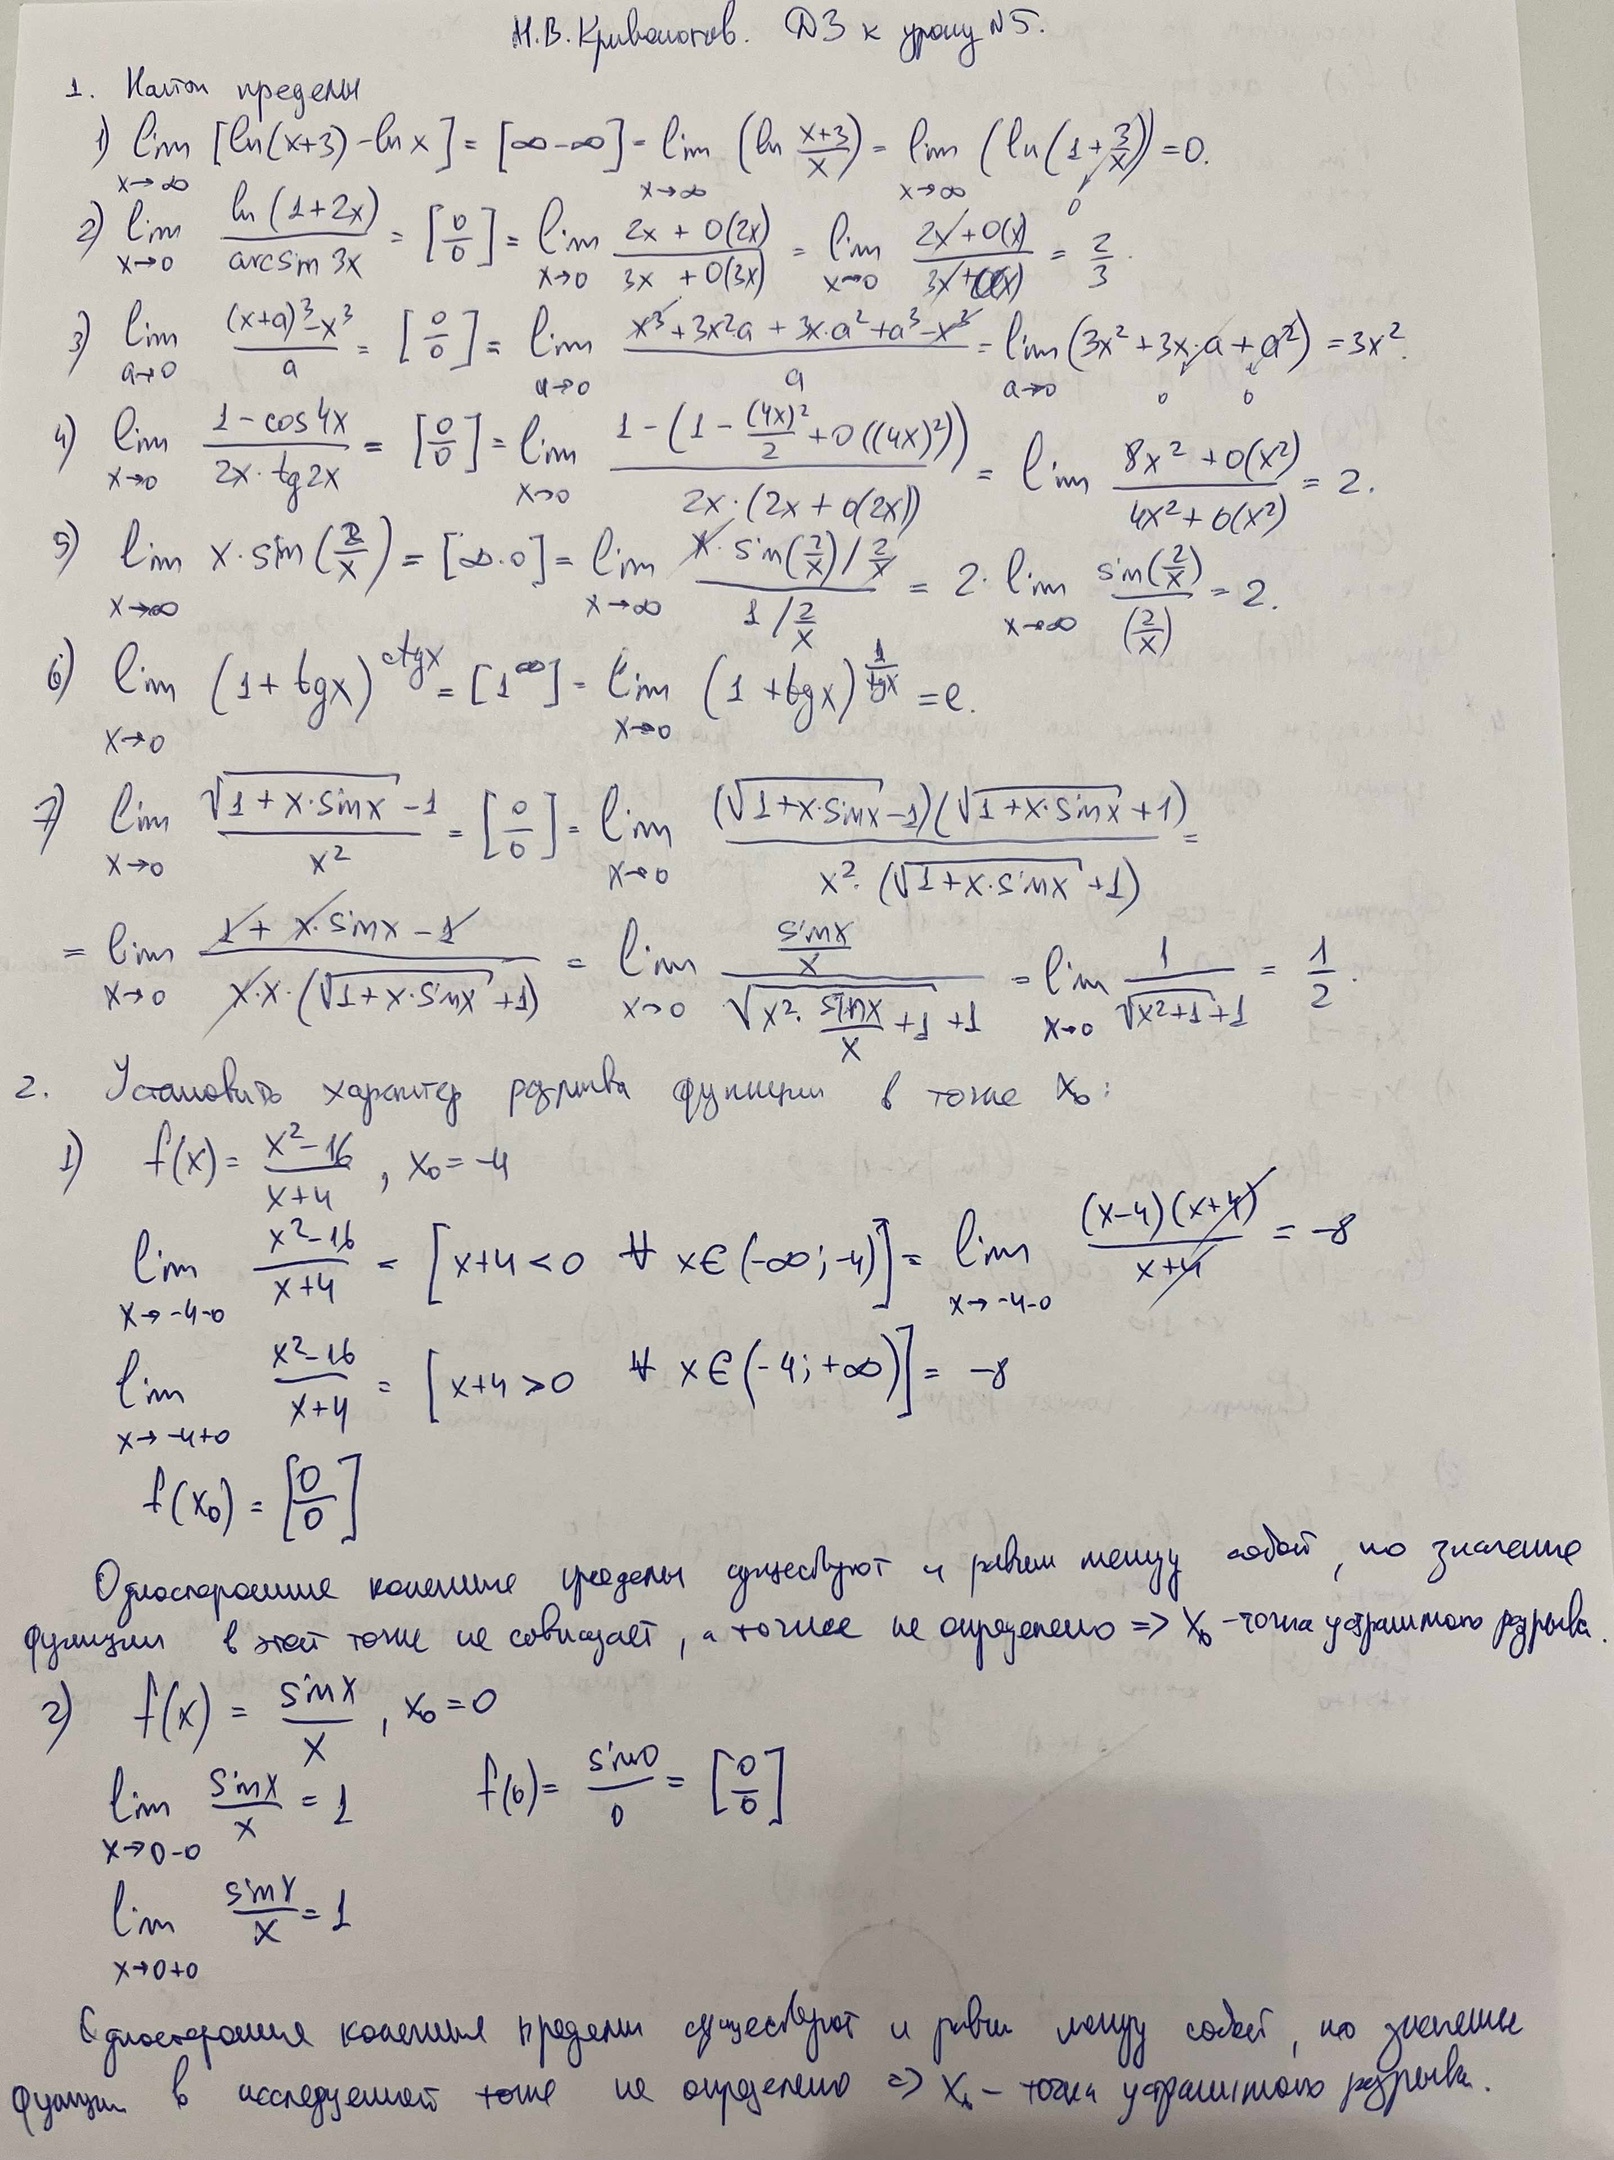 Н.В. Кривоногов. ДЗ к уроку №5.
1. Найти пределы
1) lim x→∞ [ln(x+3) - ln x] = [∞-∞] = lim x→∞ (ln (x+3)/x) = lim x→∞ (ln(1+3/x)) = 0.
0
2) lim x→0 ln(1+2x)/arcsin 3x = [0/0] = lim x→0 (2x + o(2x))/(3x + o(3x)) = lim x→0 (2x+o(x))/(3x+o(x)) = 2/3.
3) lim a→0 ((x+a)³-x³)/a = [0/0] = lim a→0 (x³+3x²a+3x·a²+a³-x³)/a = lim a→0 (3x²+3x·a+a²) = 3x².
0 0
4) lim x→0 (1-cos4x)/(2x·tg2x) = [0/0] = lim x→0 (1-(1-(4x)²/2+o((4x)²)))/(2x·(2x+o(2x))) = lim (8x²+o(x²))/(4x²+o(x²)) = 2.
5) lim x→∞ x·sin(2/x) = [∞·0] = lim x→∞ (x·sin(2/x)/(2/x))/(1/(2/x)) = 2·lim x→∞ sin(2/x)/(2/x) = 2.
6) lim x→0 (1+tgx)^ctgx = [1^∞] = lim x→0 (1+tgx)^(1/tgx) = e.
7) lim x→0 (√(1+x·sinx) -1)/x² = [0/0] = lim x→0 ((√(1+x·sinx)-1)(√(1+x·sinx)+1))/(x²·(√(1+x·sinx)+1)) =
= lim x→0 (1+x·sinx-1)/(x·x·(√(1+x·sinx)+1)) = lim x→0 (sinx/x)/(√(x²·sinx/x+1)+1) = lim x→0 1/(√(x²+1)+1) = 1/2.
2. Установить характер разрыва функции в точке x₀:
1) f(x) = (x²-16)/(x+4), x₀=-4
lim x→-4-0 (x²-16)/(x+4) = [x+4<0 ∀ x∈(-∞;-4)] = lim x→-4-0 ((x-4)(x+4))/(x+4) = -8
lim x→-4+0 (x²-16)/(x+4) = [x+4>0 ∀ x∈(-4;+∞)] = -8
f(x₀) = [0/0]
Односторонние конечные пределы существуют и равны между собой, но значение
функции в этой точке не совпадает, а точнее не определено => x₀ - точка устранимого разрыва.
2) f(x) = sinx/x, x₀=0
lim x→0-0 sinx/x = 1 f(0) = sin0/0 = [0/0]
lim x→0+0 sinx/x = 1
Односторонние конечные пределы существуют и равны между собой, но значение
функции в исследуемой точке не определено => x₀ - точка устранимого разрыва.